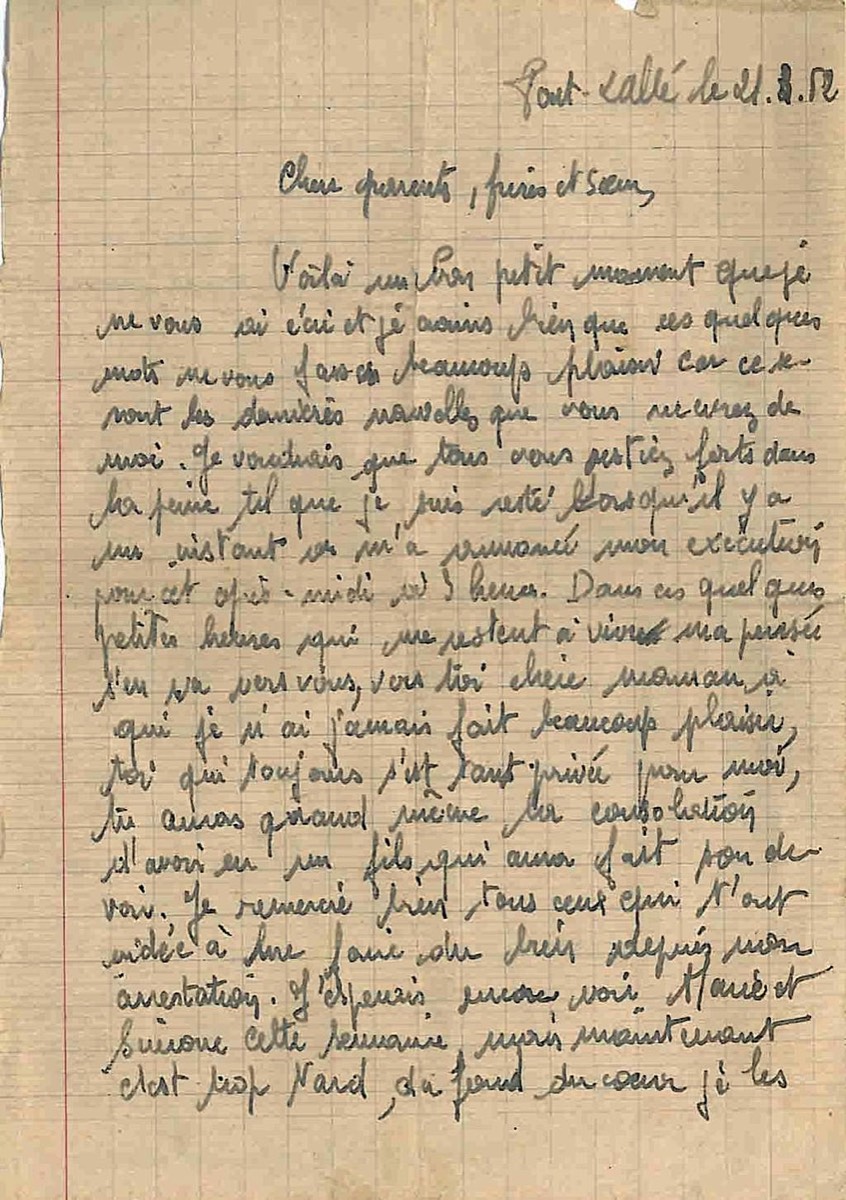 Port-Lallé le 21.2.52
Chers parents, frères et Sœur,
Voilà un bon petit moment que je
ne vous ai écri et je crains bien que ces quelques
mots ne vous fasse beaucoup plaisir car ce se-
ront les dernières nouvelles que vous recevrez de
moi. Je voudrais que tous vous restiez forts dans
la peine tel que je suis resté lorsqu'il y a
un instant on m'a annoncé mon exécution
pour cet après-midi à 3 heures. Dans ces quelques
petites heures qui me restent à vivre ma pensée
s'en va vers vous, vers toi chère maman à
qui je n'ai jamais fait beaucoup plaisir,
toi qui toujours s'est tant privée pour moi,
tu auras quand même la consolation
d'avoir eu un fils qui aura fait son de-
voir. Je remercie bien tous ceux qui t'ont
aidée à me faire du bien depuis mon
arrestation. J'espérais encore voir Marie et
Simone cette semaine, mais maintenant
c'est trop tard, du fond du cœur je les